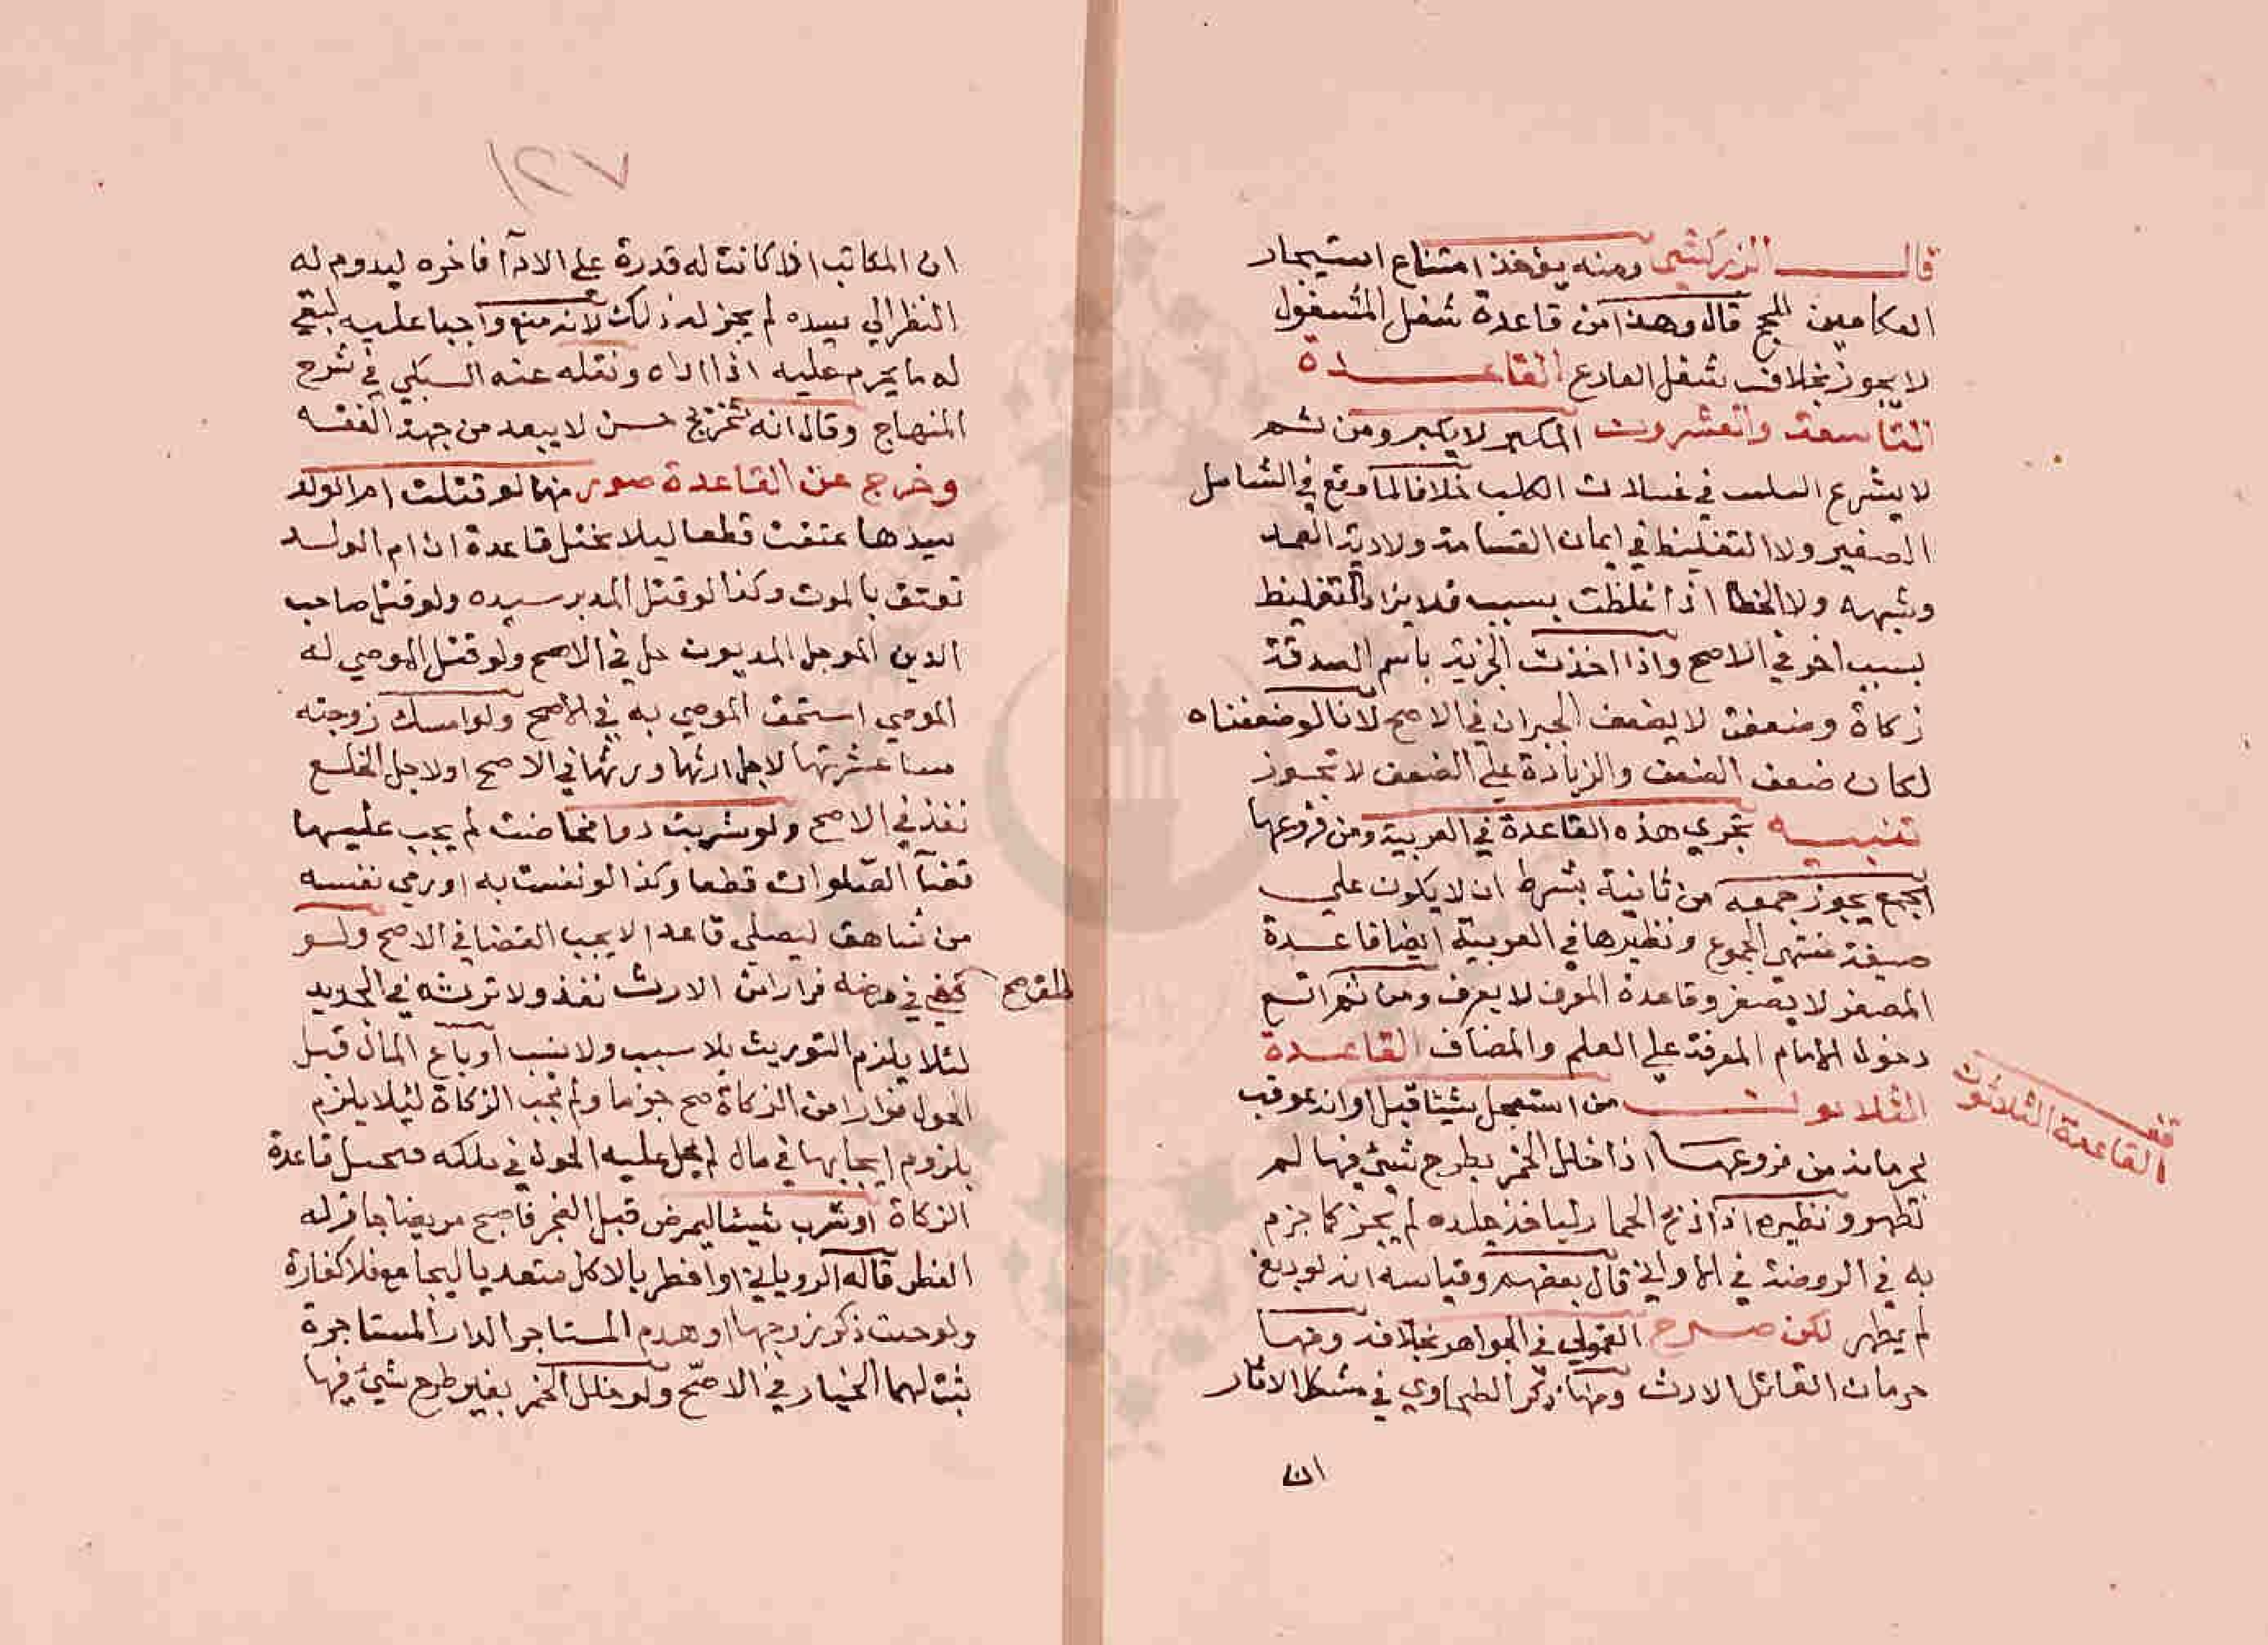 قال الزركشي ومنه يؤخذ امتناع استيجار
العكامين للحج قال وهذا من قاعدة شغل المشغول
لا يجوز بخلاف شغل الفارغ القاعدة
التاسعة والعشرون المكبر لا يكبر ومن ثم
لا يشرع التثليث في غسلات الكلب خلافا لما وقع في الشامل
الصغير ولا التغليظ في ايمان القسامة ولا دية العمد
وشبهه ولا الخطا اذا غلظت بسبب فلا يزاد التغليظ
بسبب اخر في الاصح واذا اخذت الجزية باسم الصدقة
زكاة وضعفت لا يضعف الجبران في الاصح لانا لو ضعفناه
لكان ضعف الضعف والزيادة علي الضعف لا تجوز
تنبيه تجري هذه القاعدة في العربية ومن فروعها
الجمع يجوز جمعه من ثانية بشرط ان لا يكون علي
صيغة منتهي الجموع ونظيرها في العربية ايضا قاعدة
المصغر لا يصغر وقاعدة المعرف لا يعرف ومن ثم امتنع
دخول اللام المعرفة علي العلم والمضاف القاعدة
الثلاثون من استعجل شيئا قبل اوانه عوقب
بحرمانه من فروعها اذا خلل الخمر بطرح شيئ فيها لم
تطهر ونظيره اذا ذبح الحمار ليا خذ جلده لم يجز كما جزم
به في الروضة في الاواني قال بعضهم وقياسه انه لو دبغ
لم يطهر لكن صرح القمولي في الجواهر بخلافه ومنها
حرمان القاتل الارث ومنها ذكر الطحاوي في مشكل الاثار
ان
قف
القاعدة الثلاثون
١٢٧
ان المكاتب اذا كانت له قدرة علي الادآ فاخره ليدوم له
النظر الي سيده لم يجز له ذلك لانه منع واجبا عليه ليبقي
له ما يحرم عليه اذا اداه ونقله عنه السبكي في شرح
المنهاج وقال انه تخريج حسن لا يبعد من جهة الفقه
وخرج عن القاعدة صور منها لو قتلت ام الولد
سيدها عتقت قطعا ليلا تختل قاعدة ان ام الولد
تعتق بالموت وكذا لو قتل المدبر سيده ولو قتل صاحب
الدين الموجل المديون حل في الاصح ولو قتل الموصي له
الموصي استحق الموصي به في الاصح ولو امسك زوجته
مسا عشرتها لاجل ارثها ورثها في الاصح او لاجل الخلع
نفذ في الاصح ولو شربت دوا فحاضت لم يجب عليها
قضآ الصلوات قطعا وكذا لو نفست به او رمي نفسه
من شاهق ليصلي قاعدا لا يجب القضا في الاصح ولو
طلق صح
في مرضه فرارا من الارث نفذ ولا ترثه في الجديد
لئلا يلزم التوريث بلا سبب ولا نسب او باع المال قبل
الحول فرارا من الزكاة صح جزما ولم تجب الزكاة ليلا يلزم
بلزوم ايجابها في مال لم يحل عليه الحول في ملكه فتختل قاعدة
الزكاة او شرب شيئا ليمرض قبل الفجر فاصبح مريضا جاز له
الفطر قاله الروياني او افطر بالاكل متعديا ليجامع فلا كفارة
ولو جبت ذكر زوجها او هدم المستاجر الدار المستاجرة
ثبت لهما الخيار في الاصح ولو خلل الخمر بغير طرح شيئ فيها